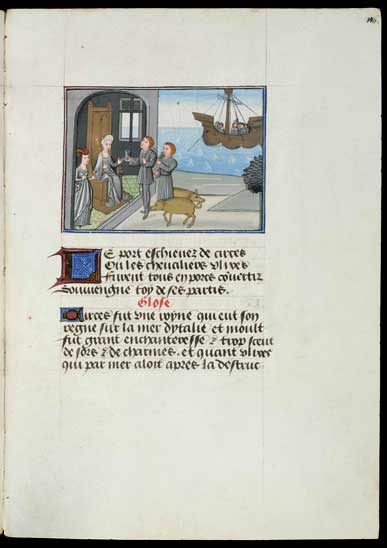 Le port eschiever de circes
Ou les chevaliers ulixes
furent tous en porcs couertiz
Souviengne toy de ses partis.
Glose
Circes fut une royne qui eut son
regne sur la mer dytalie et moult
fut grant enchanteresse & trop sceut
de sors & de charmes. et quant ulixes
qui par mer aloit apres la destruc